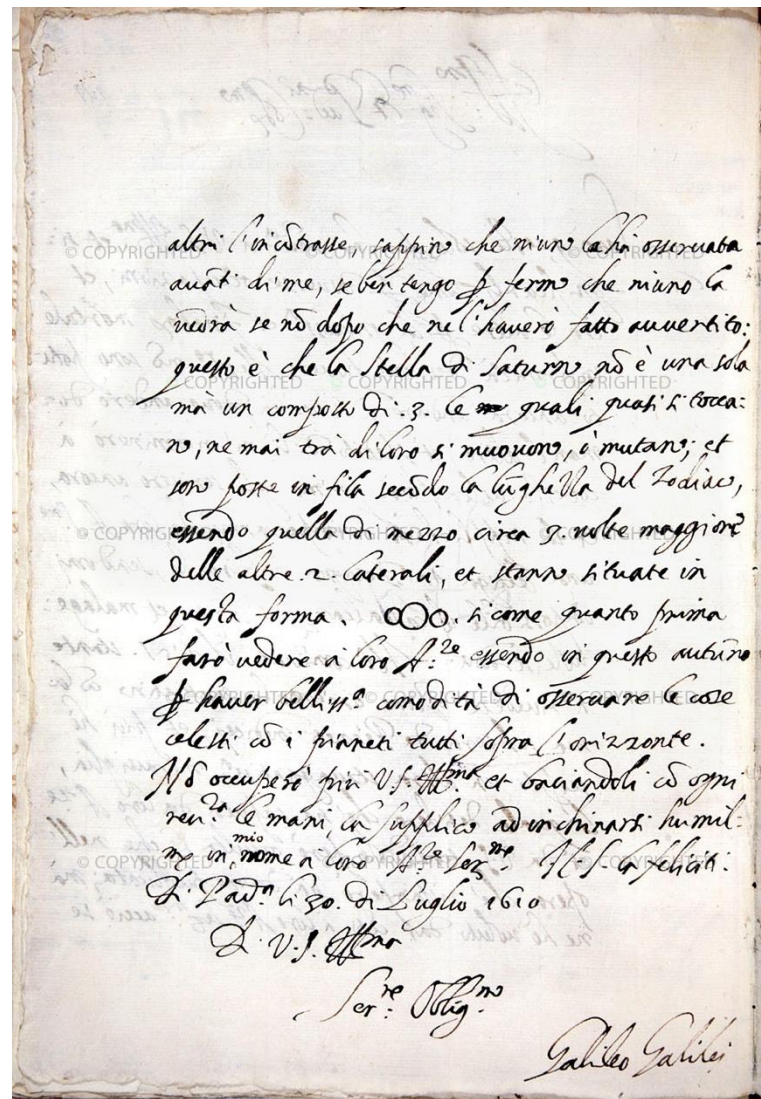 altri l'incõtrasse, sappino che niuno la ha osservata
avãti di me, se ben tengo ꝑ fermo che niuno la
vedrà se nõ dopo che ne l'haverò fatto avvertito:
questo è che la Stella di Saturno nõ è una sola
mà un composto di .3. le quali quasi si tocca=
no, ne mai trà di loro si muovono, ò mutano; et
son poste in fila secõdo la lũghezza del Zodiaco,
essendo quella di mezzo circa 3. volte maggiore
delle altre .2. laterali, et stanno situate in
questa forma. oOo. sicome quanto prima
farò vedere a loro A.ze essendo in questo autũno
ꝑ haver belliss.a comodità di osservare le cose
celesti cõ i pianeti tutti sopra l'orizzonte.
Nõ occuperò più V.S. Ill.ma et baciandoli cõ ogni
rev.za le mani, la supplico ad inchinarsi humil=
me in mio nome a loro A.ze Ser.me Il S. la feliciti.
Di Pad.a li 30. di Luglio 1610
Di V.S. Ill.ma
Ser.re Oblig.mo
Galileo Galilei
© COPYRIGHTED
© COPYRIGHTED
© COPYRIGHTED
© COPYRIGHTED